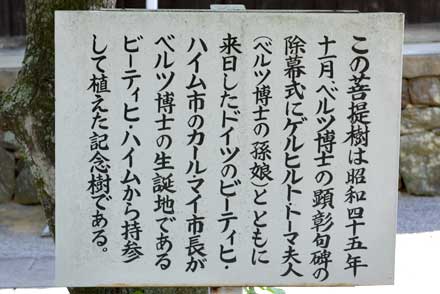 この菩提樹は昭和四十五年
十一月、ベルツ博士の顕彰句碑の
除幕式にゲルヒルト・トーマ夫人
（ベルツ博士の孫娘）とともに
来日したドイツのビーティヒ・
ハイム市のカールマイ市長が
ベルツ博士の生誕地である
ビーティヒ・ハイムから持参
して植えた記念樹である。